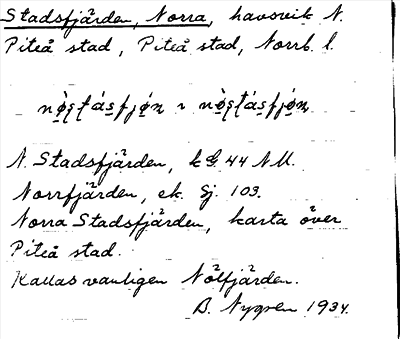 Stadsfjärden, Norra, havsvik N.
Piteå stad, Piteå stad, Norrb. l.
N. Stadsfjärden, k G. 44 NU.
Norrfjärden, ek. Gj. 103.
Norra Stadsfjärden, karta över
Piteå stad.
Kallas vanligen Nölfjärden.
B. Nygren 1934.